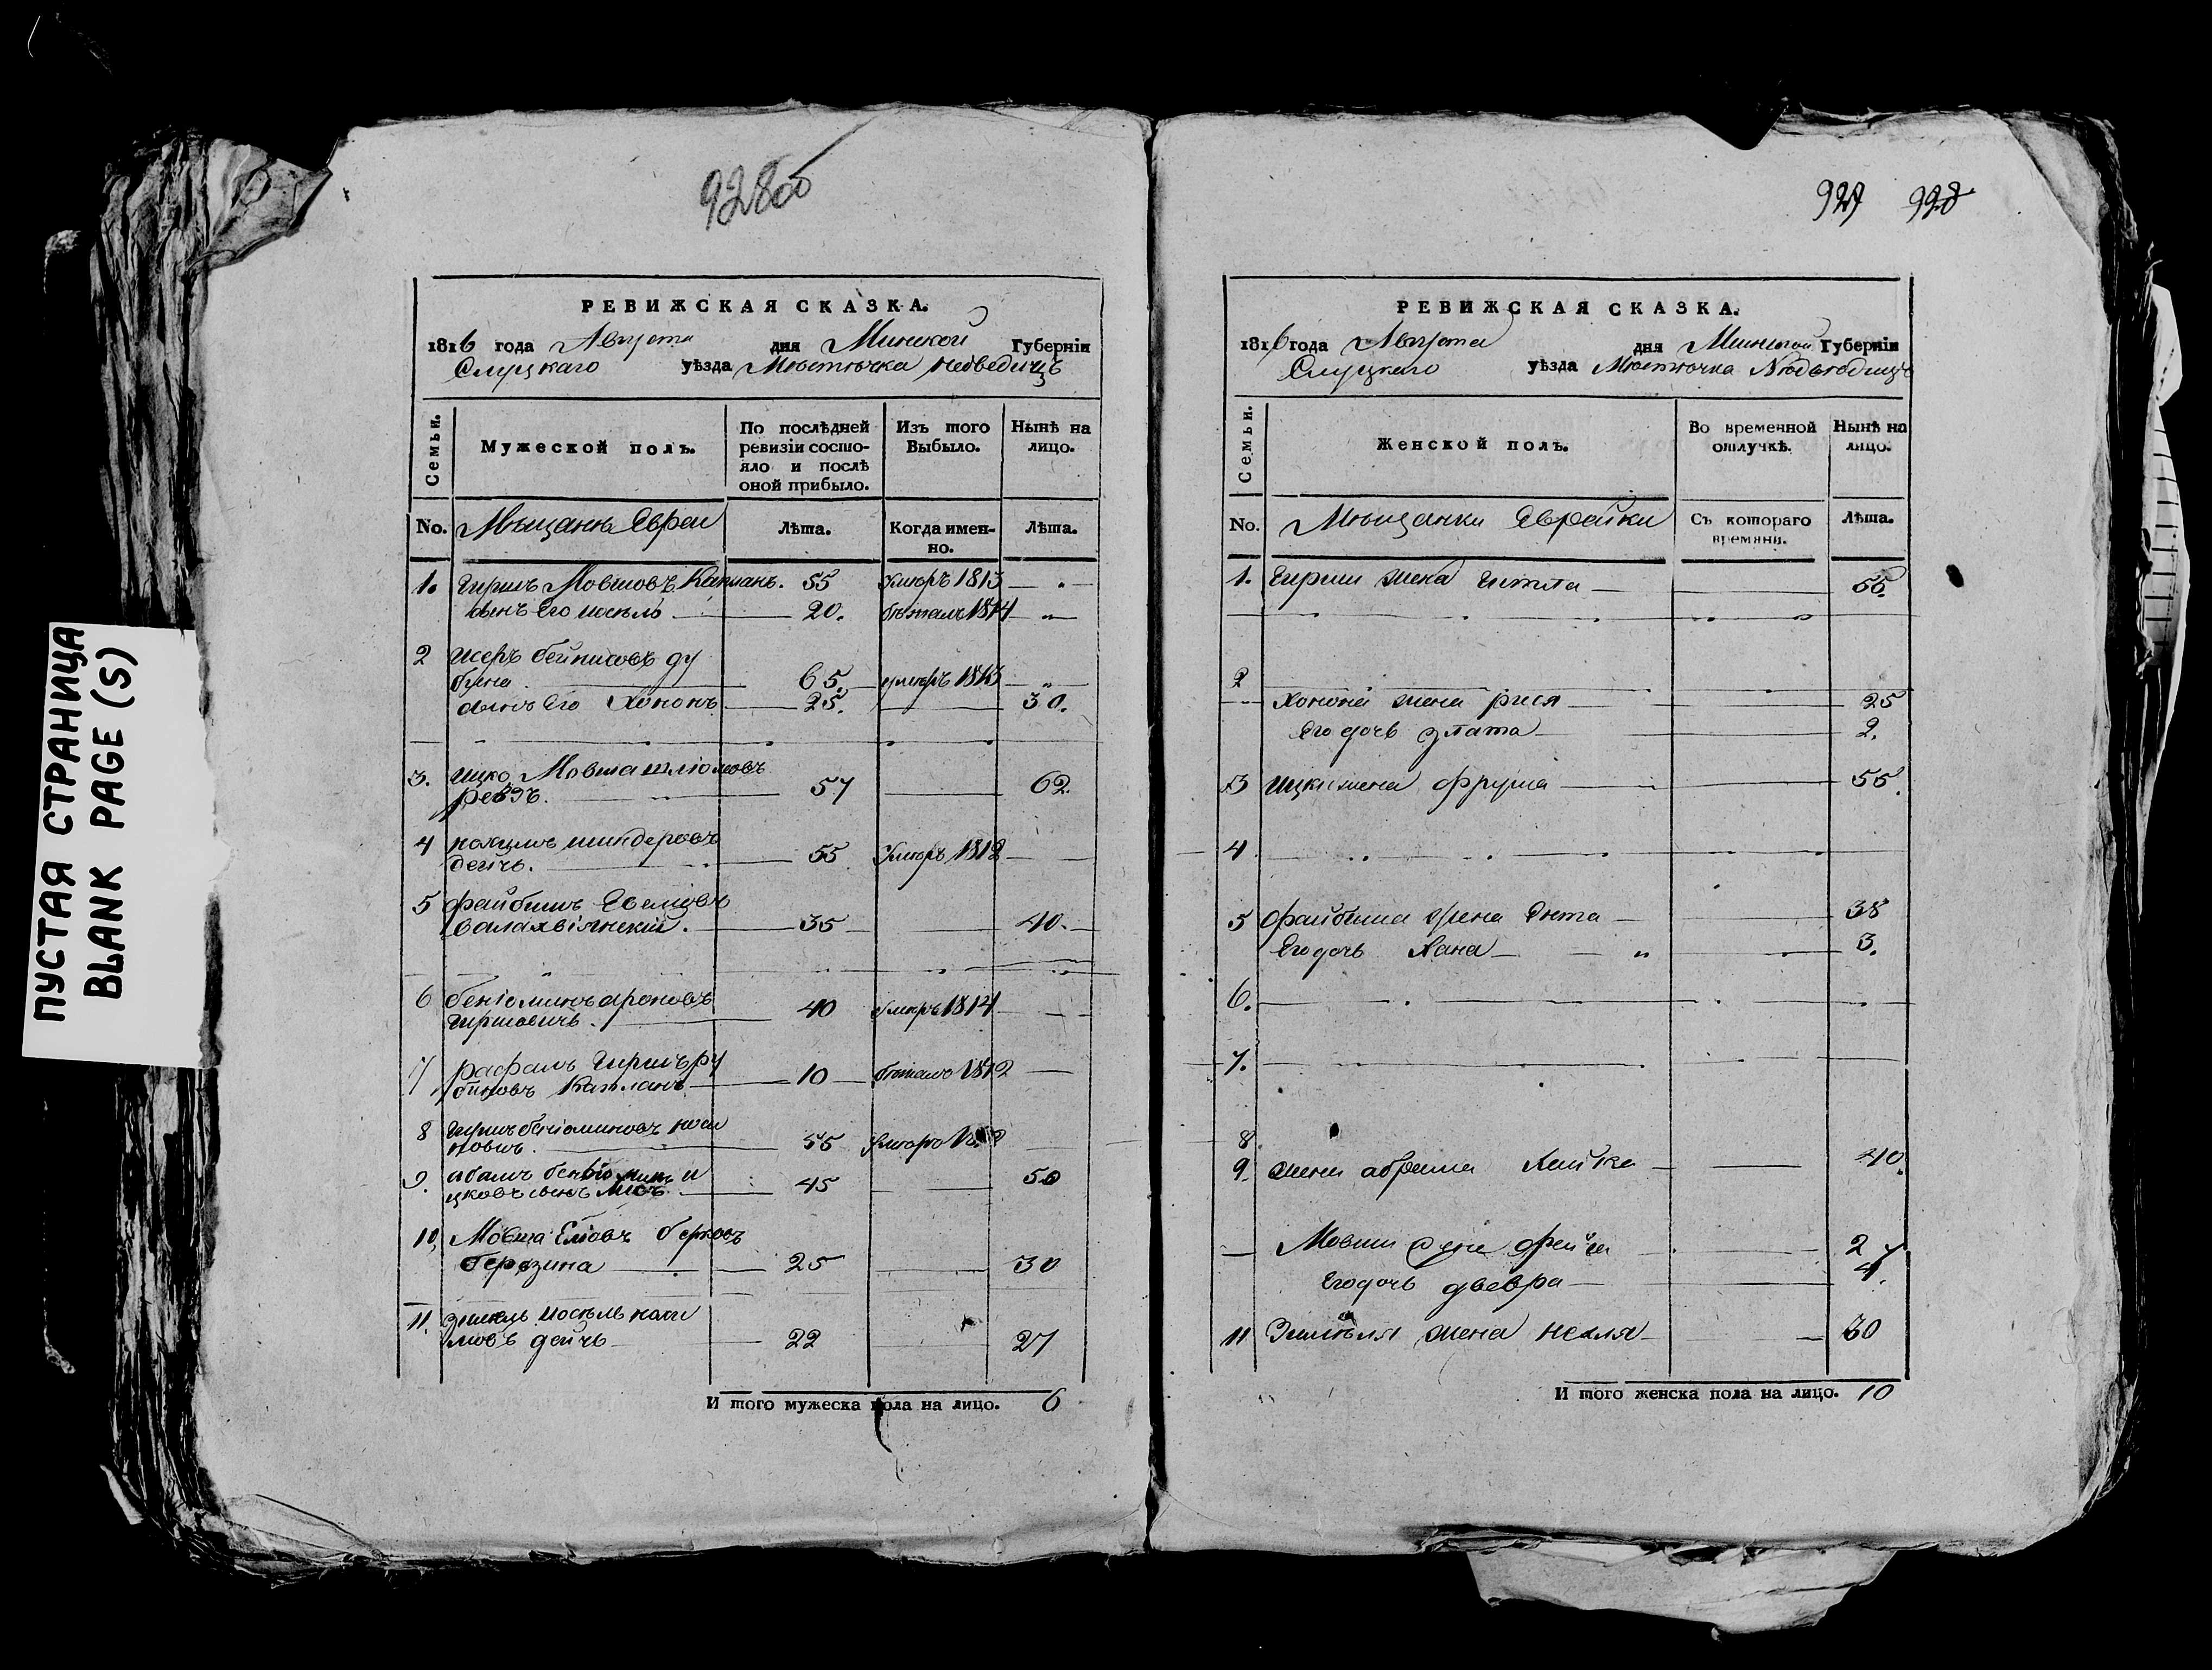 ПУСТАЯ СТРАНИЦА
BLANK PAGE (S)
928об
РЕВИЖСКАЯ СКАЗКА.
1816 года Августа дня Минской Губерніи
Слуцкаго уѣзда Мѣстѣчка Медведицъ
Семьи.
Мужеской полъ.
По послѣдней
ревизіи состо-
яло и послѣ
оной прибыло.
Изъ того
Выбыло.
Нынѣ на
лицо.
No. Мѣщанѣ Евреи Лѣта. Когда имен-
но. Лѣта.
1. Гиршъ Мовшовъ Капланъ. 55 Умѣръ 1813
сынъ Его иосѣль 20. бѣжалъ 1814
2 Исеръ бейнисовъ ду
бина 65. умѣръ 1813
сынъ Его Хононъ 25. 30.
3. Ицко Мовша шліомовъ
57 62.
4 нохимъ
дейчъ. 55 Умѣръ 1812
5 файбишъ
35 40.
6 беніоминъ ароновъ
гиршовичъ. 40 Умѣръ 1814
7 рафалъ Гиршъ ру
биновъ Капланъ 10 бѣжалъ 1812
8 Гиршъ беніоминовъ
новичъ. 55 Умѣръ
9. беніоминъ и
цковъ сынъ 45 50
10, Мовша Еліовъ берковъ
березина 25 30
11. Зимель иосѣль нохи
мовъ дейчъ 22 27
И того мужеска пола на лицо. 6
929 928
РЕВИЖСКАЯ СКАЗКА.
1816 года Августа дня Минской Губерніи
Слуцкаго уѣзда Мѣстѣчка Мѣдьвѣдицъ
Семьи.
Женской полъ.
Во временной
отлучкѣ.
Нынѣ на
лицо.
No. Мѣщанки Еврейки Съ котораго
времяни. Лѣта.
1. Гирши жена Гитля 55.
2
Хонони жена рися 25
Его дочь злата 2.
3 Ицки жена фрума 55.
4
5 файбиша жена Ента 38
Его дочь Хана 3.
6.
7.
8
9. жена абрама Хайка 40.
Мовши жена фейга 27
Его дочь двевра 4.
11 Зимѣля жена нехля 30
И того женска пола на лицо. 10